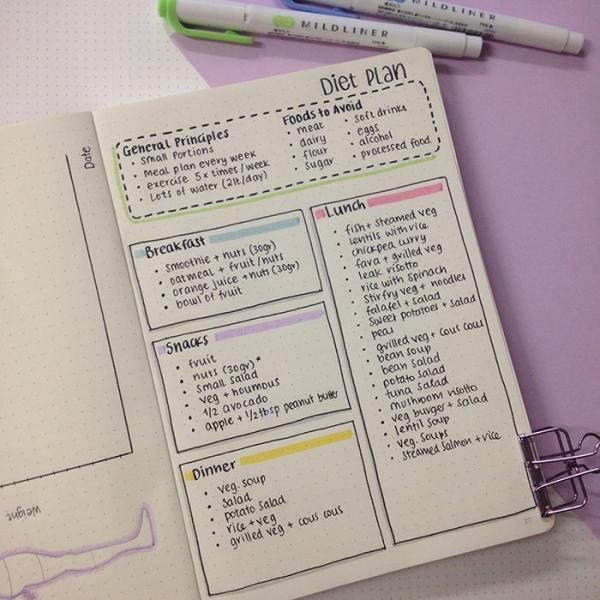 MILDLINER
MILDLINER
Diet Plan
General Principles
• small portions
• meal plan every week
• exercise 5x times/week
• Lots of water (2lt/day)
Foods to Avoid
• meat
• dairy
• flour
• sugar
• soft drinks
• eggs
• alcohol
• processed food
Breakfast
• smoothie + nuts (30gr)
• oatmeal + fruit/nuts
• orange juice + nuts (30gr)
• bowl of fruit
Snacks
• fruit
• nuts (30gr)*
• small salad
• veg + houmous
• 1/2 avocado
• apple + 1/2 tbsp peanut butter
Dinner
• veg. soup
• salad
• potato salad
• rice + veg
• grilled veg + cous cous
Lunch
• fish + steamed veg
• lentils with rice
• chickpea curry
• fava + grilled veg
• leak risotto
• rice with spinach
• stirfry veg + noodles
• falafel + salad
• sweet potatoes + salad
• peas
• grilled veg + cous cous
• bean soup
• bean salad
• potato salad
• tuna salad
• mushroom risotto
• veg burger + salad
• lentil soup
• veg. soups
• steamed salmon + rice
Date
Weight